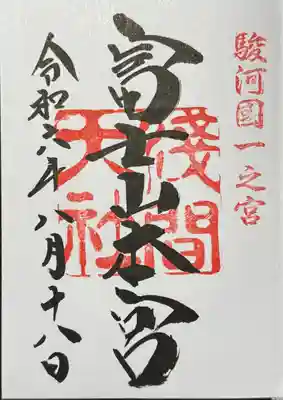 駿河國一之宮
富士山本宮
浅間
大社
令和六年八月十八日